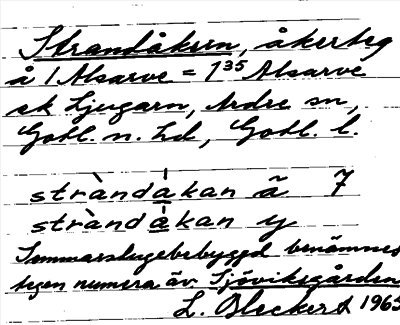 Strandåkren, åkerteg
å 1 Alsarve = 1³⁵ Alsarve
sk Ljugarn, Ardre sn,
Gotl. n. hd, Gotl. l.
stràndákan ä 7
stràndàkan y
Sommarstugebebyggd benämnes
tegen numera äv. Sjöviksgården
L. Bleckert 1965